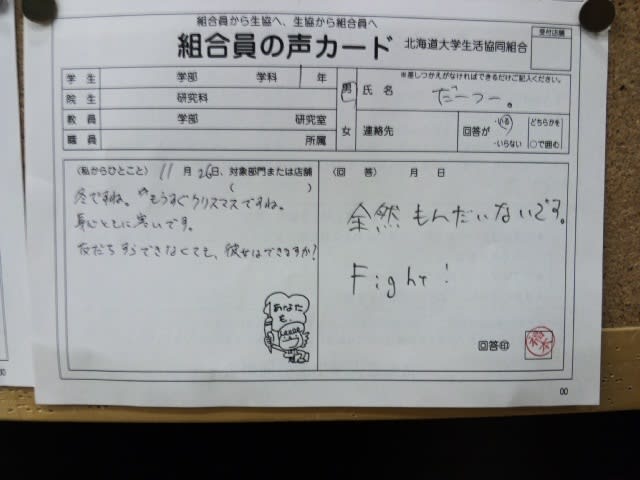 組合員から生協へ、生協から組合員へ
組合員の声カード 北海道大学生活協同組合
受付店舗
学生 学部 学科 年
院生 研究科
教員 学部 研究室
職員 所属
男
女
※差しつかえがなければできるだけご記入ください。
氏名 だーつー。
連絡先
回答が ・いる ・いらない
どちらかを○で囲む
(私からひとこと) 11月26日、対象部門または店舗
( )
冬ですね。もうすぐクリスマスですね。
身心ともに寒いです。
友だちすらできなくても、彼女はできますか?
あなたも、
(回答) 月 日
全然もんだいないです。
Fight!
回答印
00